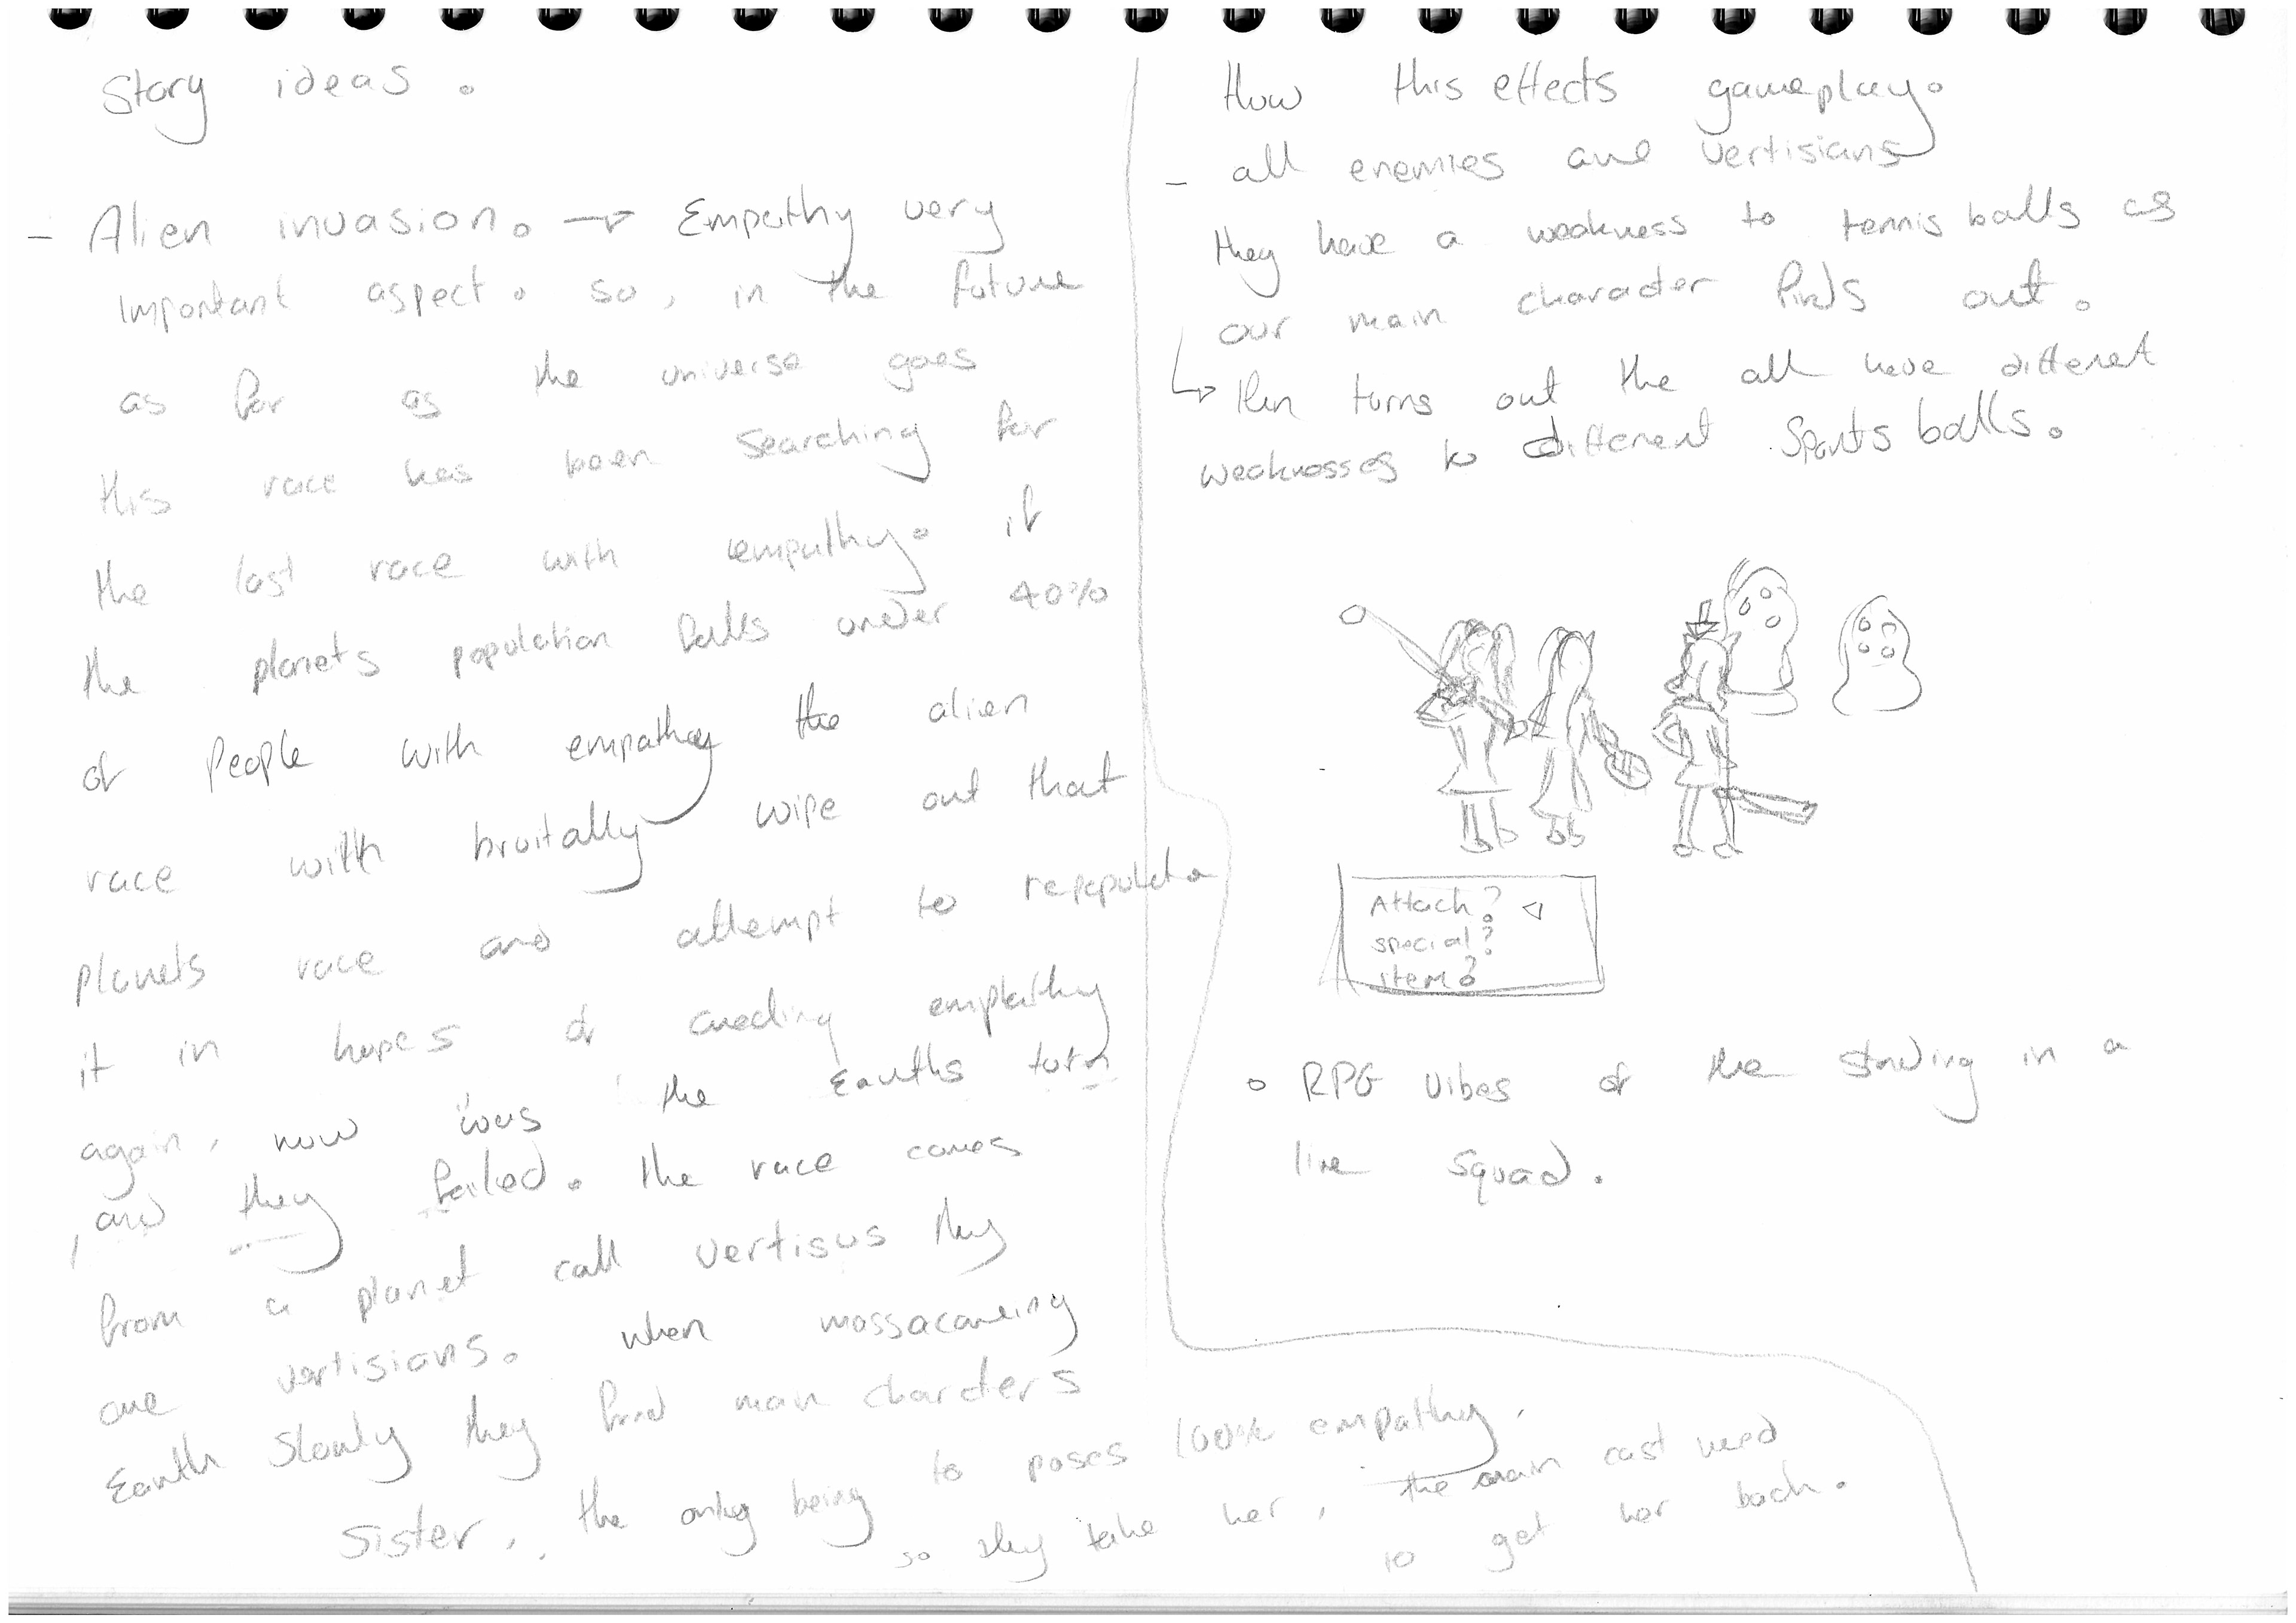 Story ideas.
- Alien invasion. → Empathy very
important aspect. so, in the future
as far as the universe goes
this race has been searching for
the last race with empathy. if
the planets population falls under 40%
of people with empathy the alien
race with bruitally wipe out that
planets race and attempt to repopulate
it in hopes of creating empathy
again, now was the Earths turn
, and they failed. the race comes
from a planet call vertisus they
are vertisians. when massacareing
Earth slowly they find main charcters
sister, the only being to poses 100% empathy,
so they take her, the main cast need
to get her back.
How this effects gameplay.
- all enemies are vertisians
they have a weakness to tennis balls as
our main character finds out.
↳ then turns out the all have different
weaknesses to different Sports balls.
Attack? ◁
special?
item?
o RPG vibes of the standing in a
line squad.